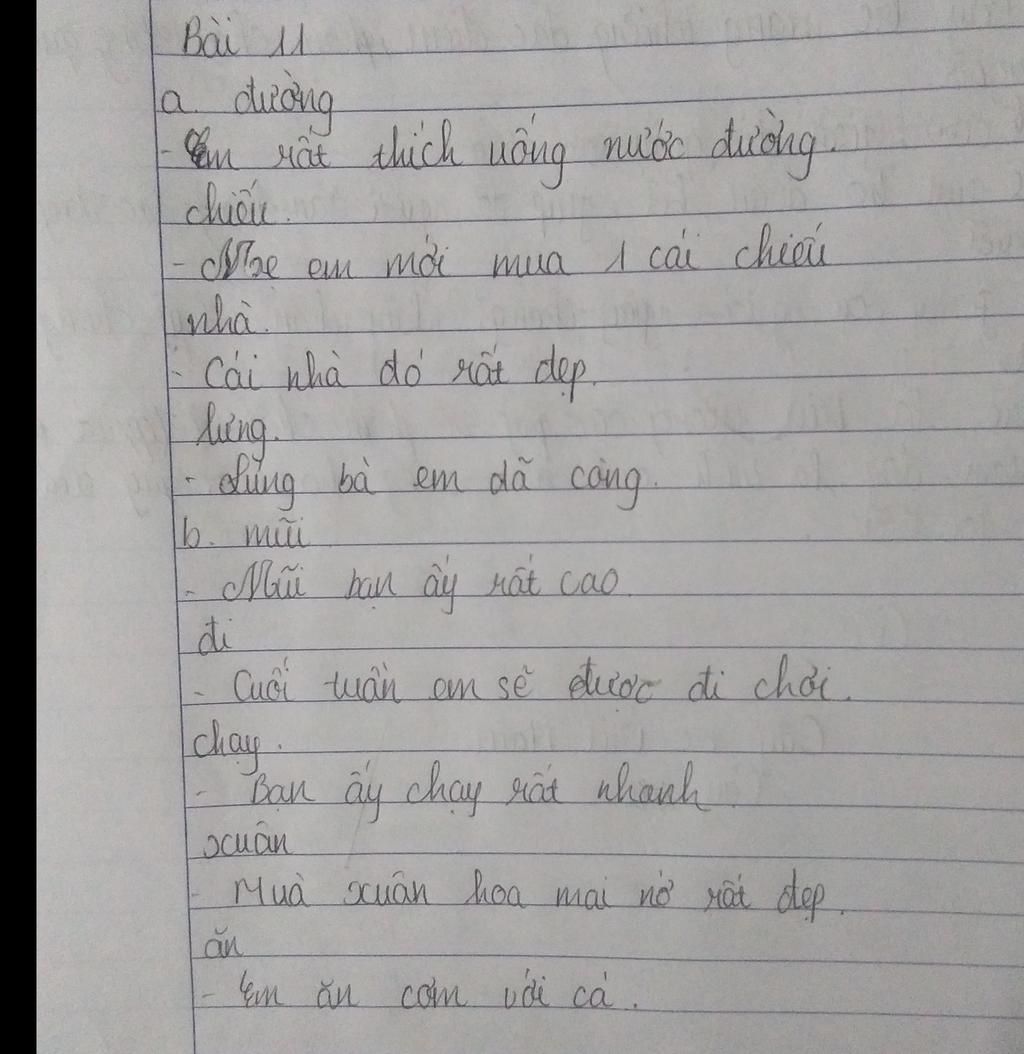 Bài 11
a. đường
- Em rất thích uống nước đường.
chiếu.
- Mẹ em mới mua 1 cái chiếu
nhà.
- Cái nhà đó rất đẹp.
lưng.
- Lưng bà em đã còng.
b. mũi
- Mũi bạn ấy rất cao.
đi
- Cuối tuần em sẽ được đi chơi.
chạy.
- Bạn ấy chạy rất nhanh
xuân
- Muà xuân hoa mai nở rất đẹp.
ăn
- Em ăn cơm với cá.